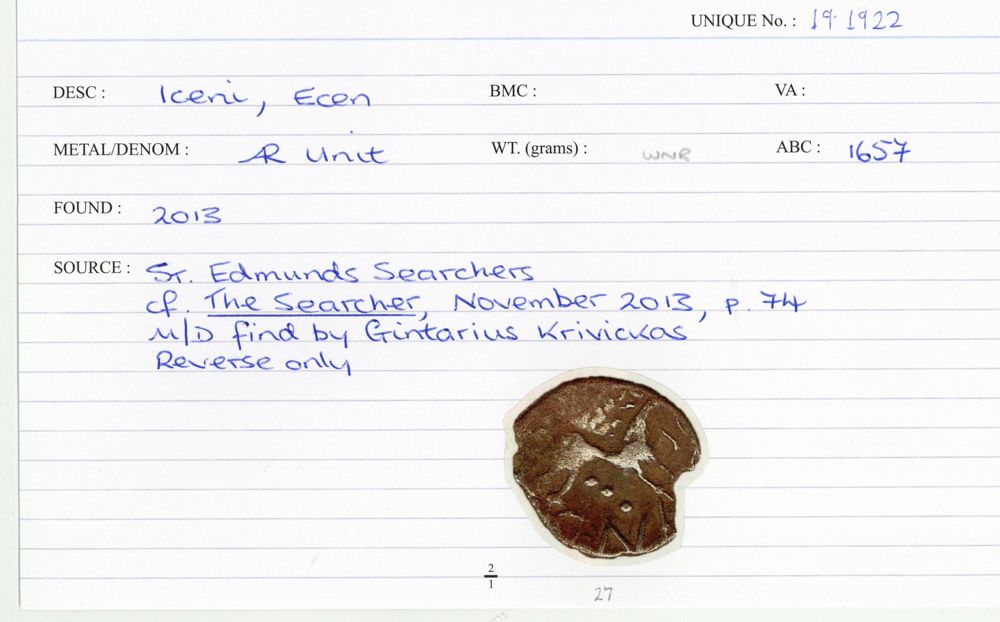 UNIQUE No. : 19.1922
DESC : Iceni, Ecen BMC : VA :
METAL/DENOM : AR Unit WT. (grams) : WNR ABC : 1657
FOUND : 2013
SOURCE : St. Edmunds Searchers
cf. The Searcher, November 2013, p. 74
M/D find by Gintarius Krivickas
Reverse only
2
1
27